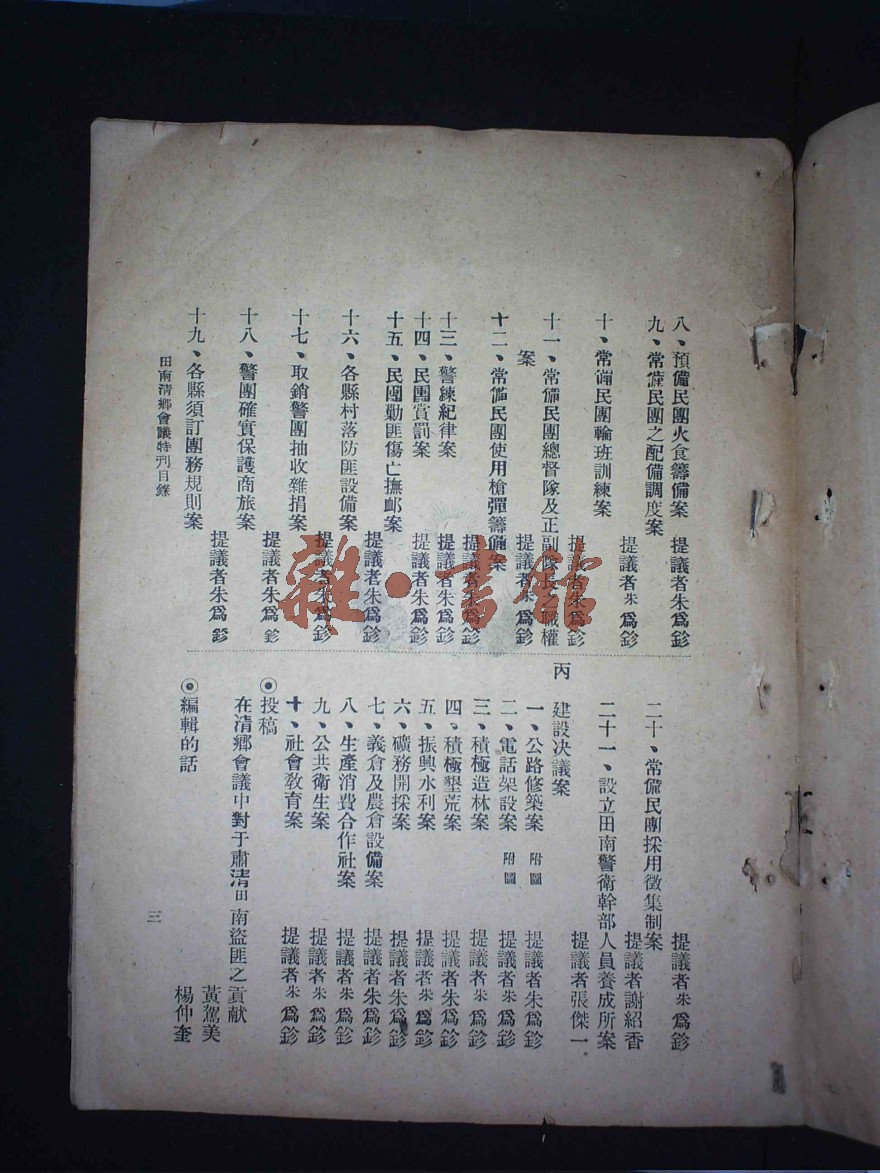 八、預備民團火食籌備案 提議者朱爲鉁
九、常備民團之配備調度案
提議者朱爲鉁
十、常備民團輪班訓練案
提議者朱爲鉁
十一、常備民團總督隊及正副隊長之職權
案 提議者朱爲鉁
十二、常備民團使用槍彈籌備案
提議者朱爲鉁
十三、警練紀律案 提議者朱爲鉁
十四、民團賞罰案 提議者朱爲鉁
十五、民團勦匪傷亡撫卹案
提議者朱爲鉁
十六、各縣村落防匪設備案
提議者朱爲鉁
十七、取銷警團抽收雜捐案
提議者朱爲鉁
十八、警團確實保護商旅案
提議者朱爲鉁
十九、各縣須訂團務規則案
提議者朱爲鉁
二十、常備民團採用徵集制案
提議者謝紹香
二十一、設立田南警衛幹部人員養成所案
提議者張傑一
丙 建設决議案
一、公路修築案 附圖 提議者朱爲鉁
二、電話架設案 附圖 提議者朱爲鉁
三、積極造林案 提議者朱爲鉁
四、積極墾荒案 提議者朱爲鉁
五、振興水利案 提議者朱爲鉁
六、礦務開採案 提議者朱爲鉁
七、義倉及農倉設備案 提議者朱爲鉁
八、生產消費合作社案 提議者朱爲鉁
九、公共衛生案 提議者朱爲鉁
十、社會教育案 提議者朱爲鉁
◉投稿
在清鄉會議中對于肅清田南盜匪之貢献
黃駕美
◉編輯的話 楊仲奎
田南清鄉會議特刊目錄
三
雜·書館